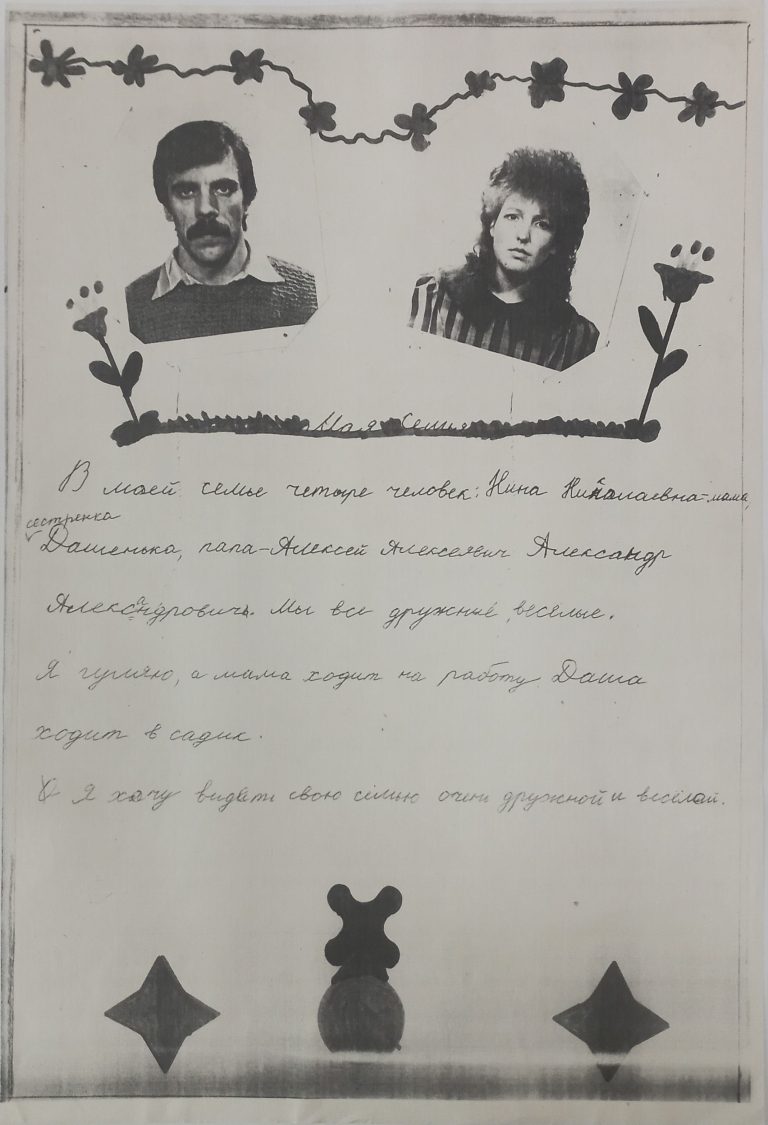 Моя Семия
В моей семье четыре человек: Нина Николаевна-мама,
сестрянка
Дашенька, папа-Алексей Алексеевич Александр
Александровичь. Мы все дружные, веселые.
Я гуляю, а мама ходит на работу Даша
ходит в садик.
Я хачу видети свою семью очень дружной и весёлой.